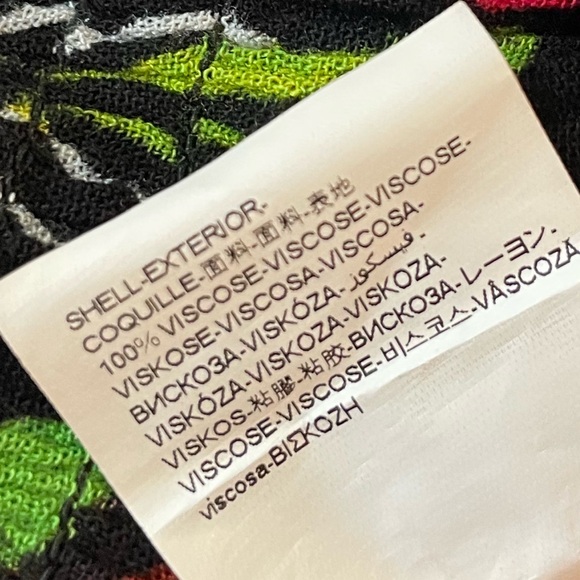 SHELL-EXTERIOR-
COQUILLE-面料-面料-表地
100% VISCOSE-VISCOSE-VISCOSE-
VISKOSE-VISCOSA-VISCOSA-
ВИСКОЗА-VISKÓZA- فيسكوز -
VISKÓZA-VISKOZA-VISKOZA-
VISKOS-粘膠-粘胶-ВИСКОЗА-レーヨン-
VISCOSE-VISCOSE-비스코스-VÂSCOZĂ
viscosa-ΒΙΣΚΟΖΗ